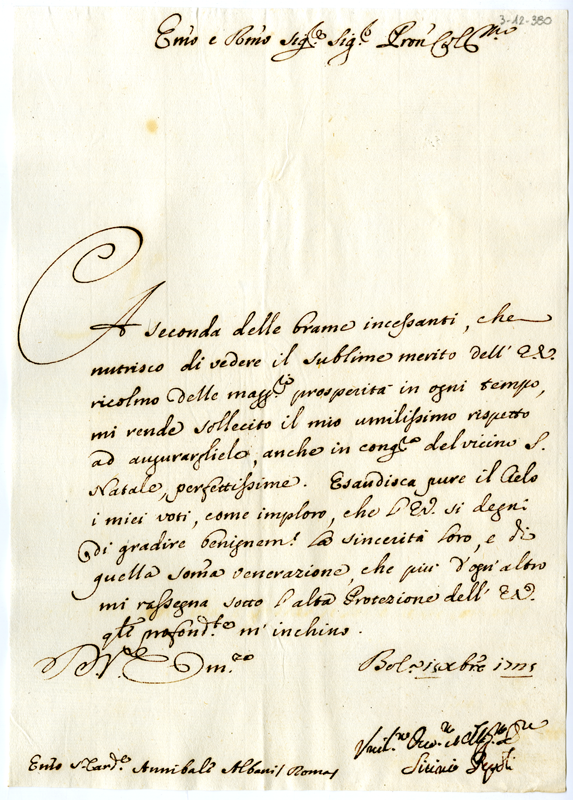 3-12-380
Em̃o e Rm̃o Sig.e Sig.e Pron Col.mo
A seconda delle brame incessanti, che
nutrisco di vedere il sublime merito dell' E.V.
ricolmo delle magg.ri prosperità in ogni tempo,
mi rende sollecito il mio umilissimo rispetto
ad augurargliele, anche in cong.ra del vicino S.
Natale, perfettissime. Esaudisca pure il Cielo
i miei voti, come imploro, che l'E.V. si degni
di gradire benignem.te la sincerità loro, e di
quella som̃a venerazione, che più d'ogn'altro
mi rassegna sotto l'alta Protezione dell' E.V.
profond.te m'inchino.
Bol.a Xbre
Em̃o S. Card.e Annibale Albani Roma